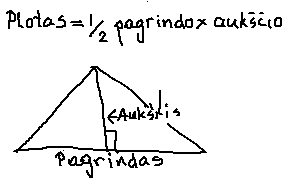 Plotas = 1/2 pagrindo x aukščio
←Aukštis
Pagrindas